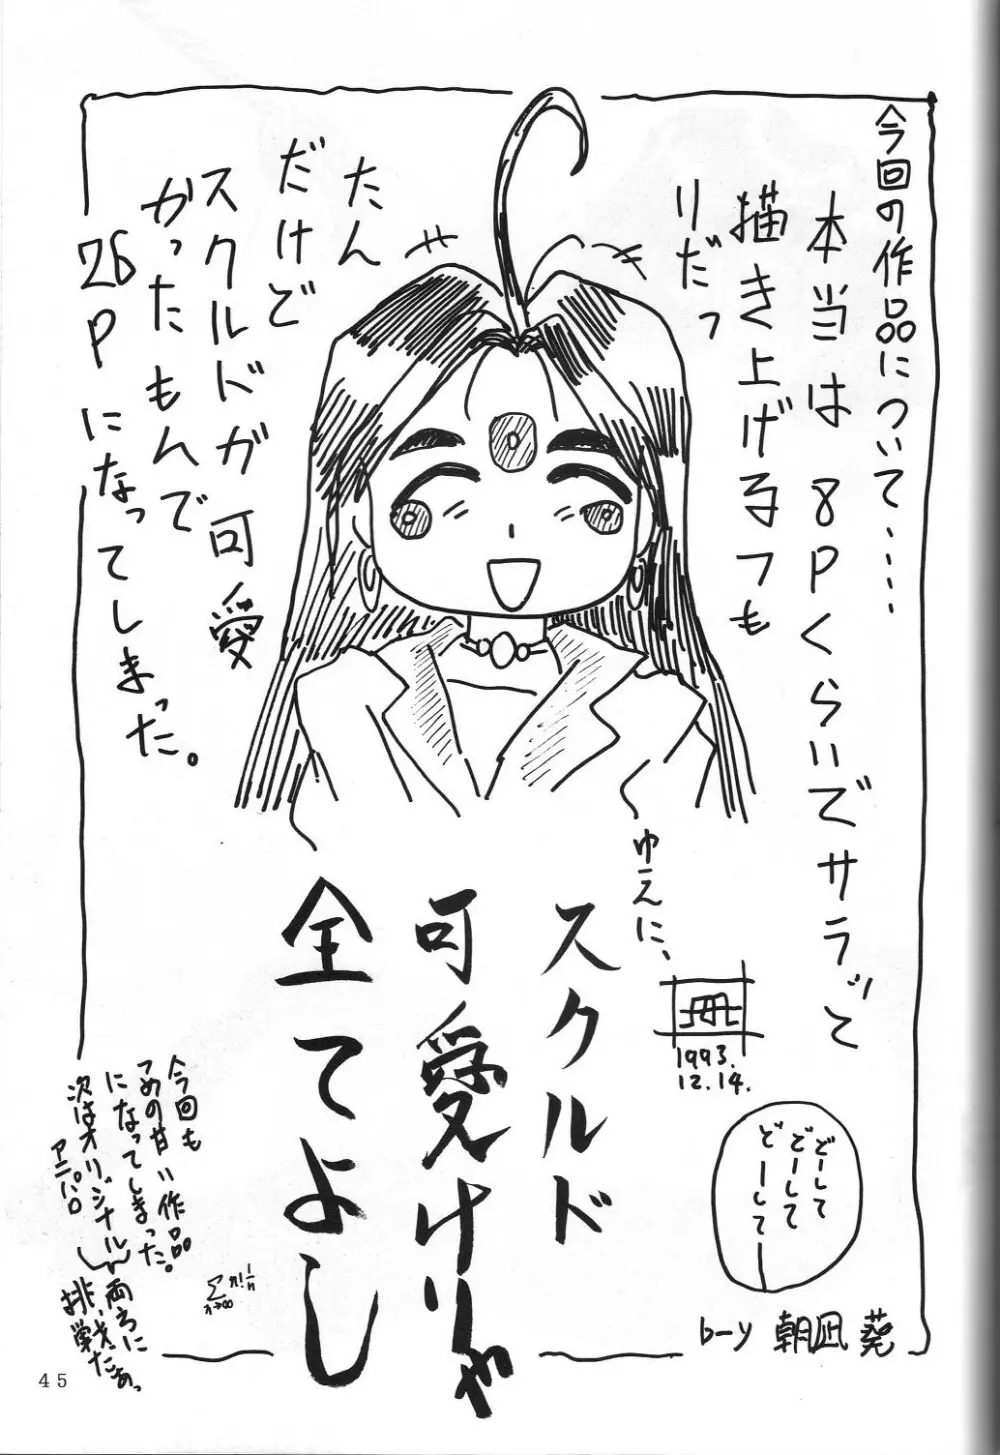 今回の作品について‥‥‥
本当は8Pくらいでサラッと
描き上げるつも
りだっ
たん
だけど
スクルドが可愛
かったもんで
26Pになってしまった。
ゆえに、
スクルド
可愛けりゃ
全てよし
1993.
12.14.
どーして
でーして
どーしてー
朝凪 葵
今回も
つめの甘い作品
になってしまった。
次はオリジナル
アニパロ
両方に
挑戦だぁっ
45